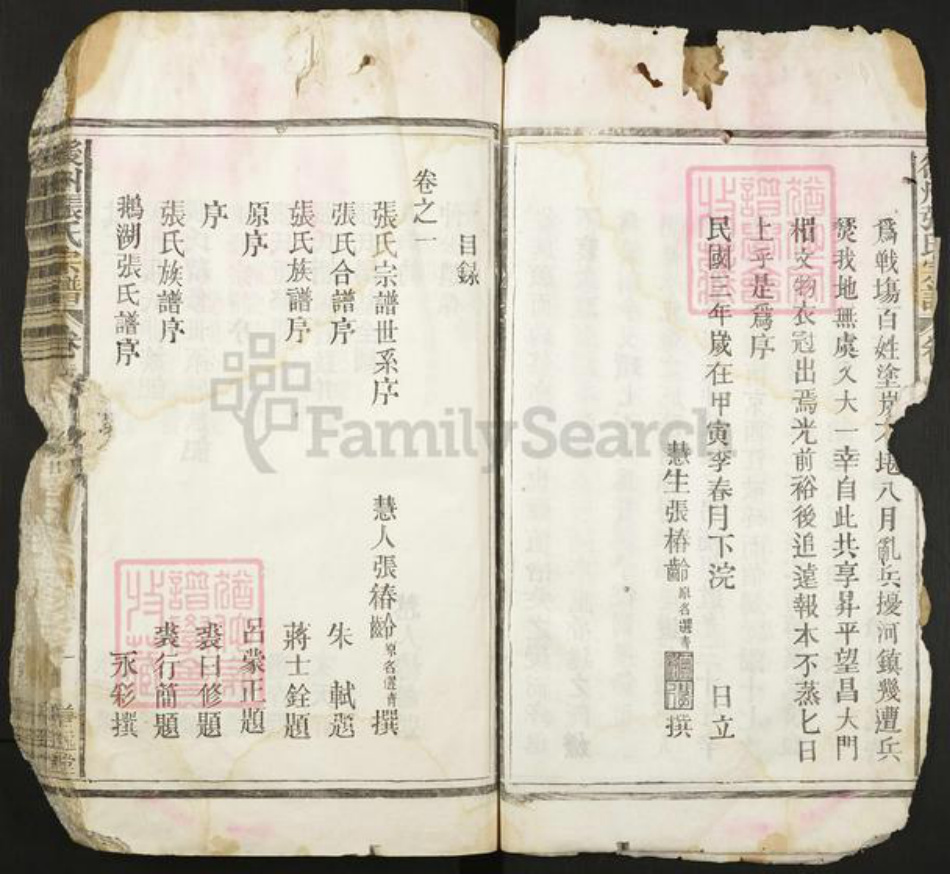 爲戰塲百姓塗炭大地八月亂兵擾河鎮幾遭兵
焚我地無虞久大一幸自此共享昇平望昌大門
楣文物衣冠出焉光前裕後追遠報本不蒸匕日
上乎是爲序
民國三年歲在甲寅季春月下浣 日立
慧生張椿齡原名選青 撰
目録
卷之一
張氏宗譜世系序 慧人張椿齡原名選青撰
張氏合譜序 朱軾題
張氏族譜序 蔣士銓題
原序 呂蒙正題
序 裘曰修題
張氏族譜序 裘行簡題
鵝湖張氏譜序 永彩撰
張氏宗譜
FamilySearch